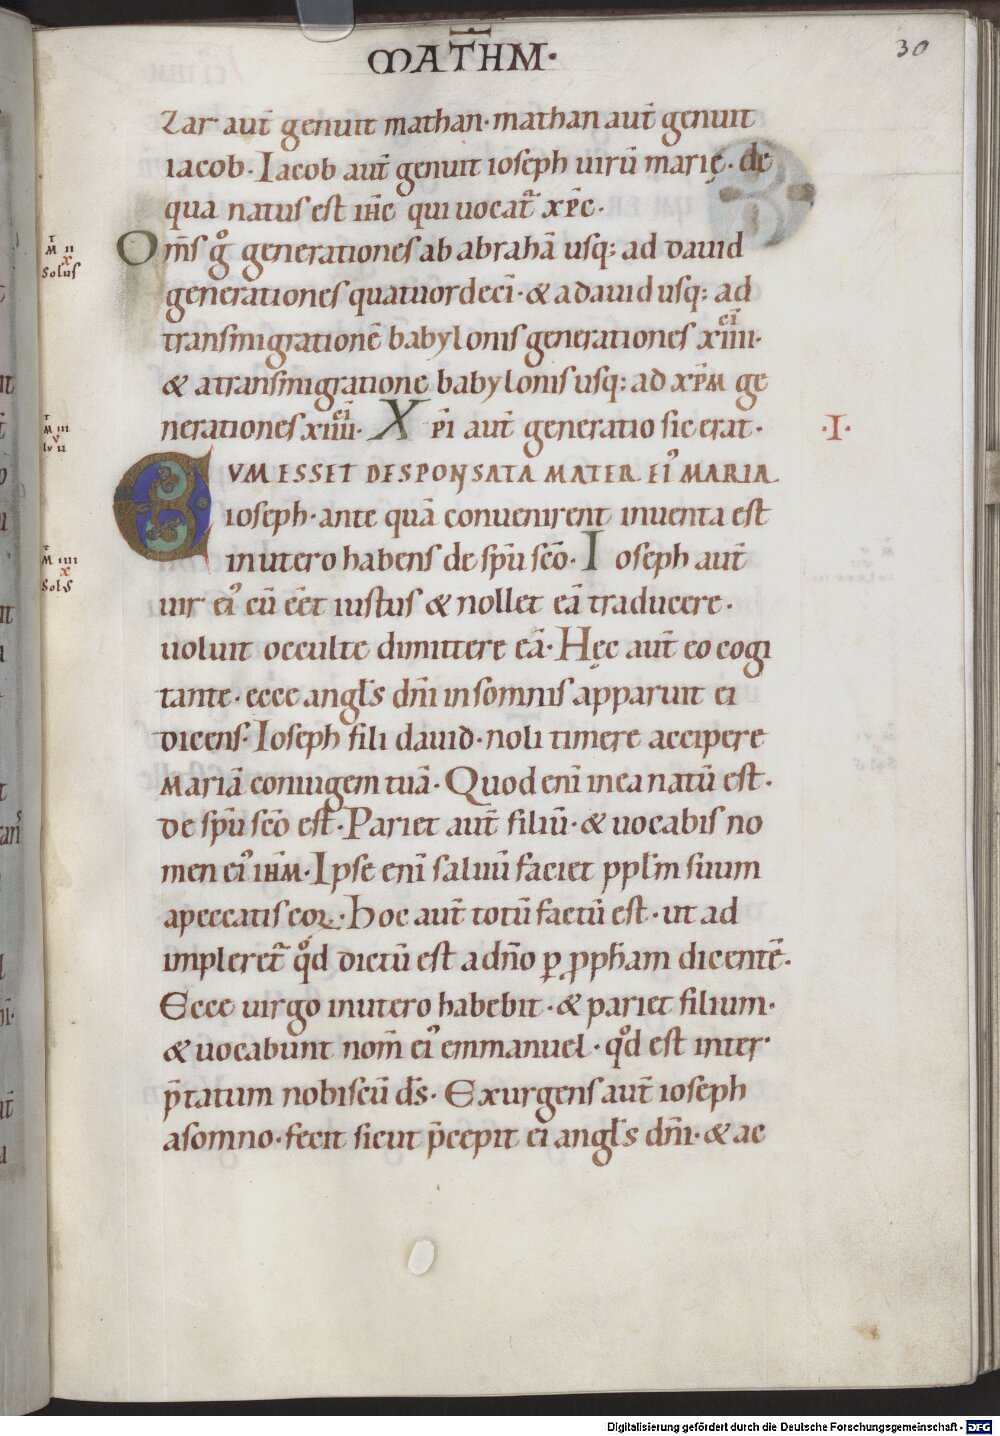 MATHM̄·
30
zar aut̄ genuit mathan· mathan aut̄ genuit
iacob· Iacob aut̄ genuit ioseph uirū marię· de
qua natus est ih̄c qui uocat᷑ xp̄c·
Om̄s gͦ generationes ab abrahā usq; ad dauid
generationes quatuordecī· & a dauid usq; ad
transmigrationē babylonis generationes xiiii·
& a transmigratione babylonis usq; ad xp̄m ge
nerationes xiiii· Xp̄i aut̄ generatio sic erat·
·I·
CVM ESSET DESPONSATA MATER EIꝰ MARIA
ioseph· ante quā conuenirent inuenta est
in utero habens de sp̄u sc̄o· Ioseph aut̄
uir eiꝰ cū eēt iustus & nollet eā traducere·
uoluit occulte dimittere eā· Hęc aut̄ eo cogi
tante· ecce angl̄s dn̄i in somnis apparuit ei
dicens· Ioseph fili dauid· noli timere accipere
Mariā coniugem tuā· Quod enī in ea natū est·
de sp̄u sc̄o est· Pariet aut̄ filiū· & uocabis no
men eiꝰ ih̄m· Ipse enī saluū faciet ppl̄m suum
a peccatis eoꝝ· Hoc aut̄ totū factū est· ut ad
impleret᷑ qͦd dictū est a dn̄o ꝑ ꝓph̄am dicentē·
Ecce uirgo in utero habebit· & pariet filium·
& uocabunt nom̄ eiꝰ emmanuel· qͦd est inter
p̄tatum nobiscū ds̄· Exurgens aut̄ ioseph
a somno· fecit sicut p̄cepit ei angl̄s dn̄i· & ac
M II
X
Solus
M III
V
LV II
M IIII
X
Sols
Digitalisierung gefördert durch die Deutsche Forschungsgemeinschaft - DFG